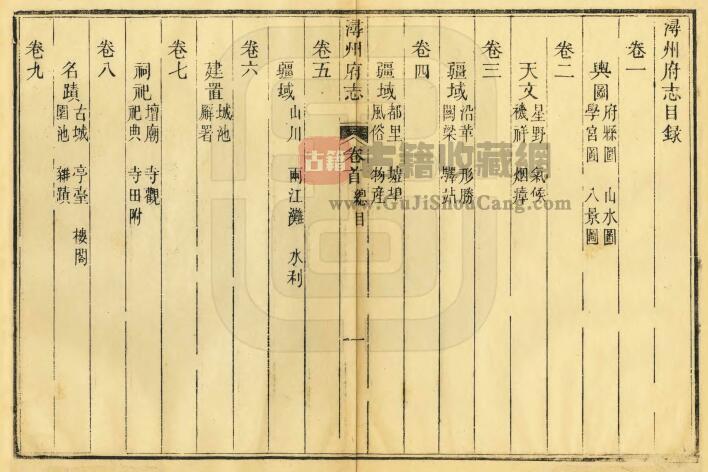 潯州府志目録
卷一
輿圖 府縣圖 山水圖
學宮圖 八景圖
卷二
天文 星野 氣候
禨祥 烟瘴
卷三
疆域 沿革 形勝
關梁 驛站
卷四
疆域 都里 墟埠
風俗 物産
潯州府志 卷首 總目 一
卷五
疆域 山川 兩江灘 水利
卷六
建置 城池
廨署
卷七
祠祀 壇廟 寺觀
祀典 寺田附
卷八
名蹟 古城 亭臺 樓閣
園池 雜蹟
卷九
古籍
古籍收藏網
www.GuJiShouCang.com